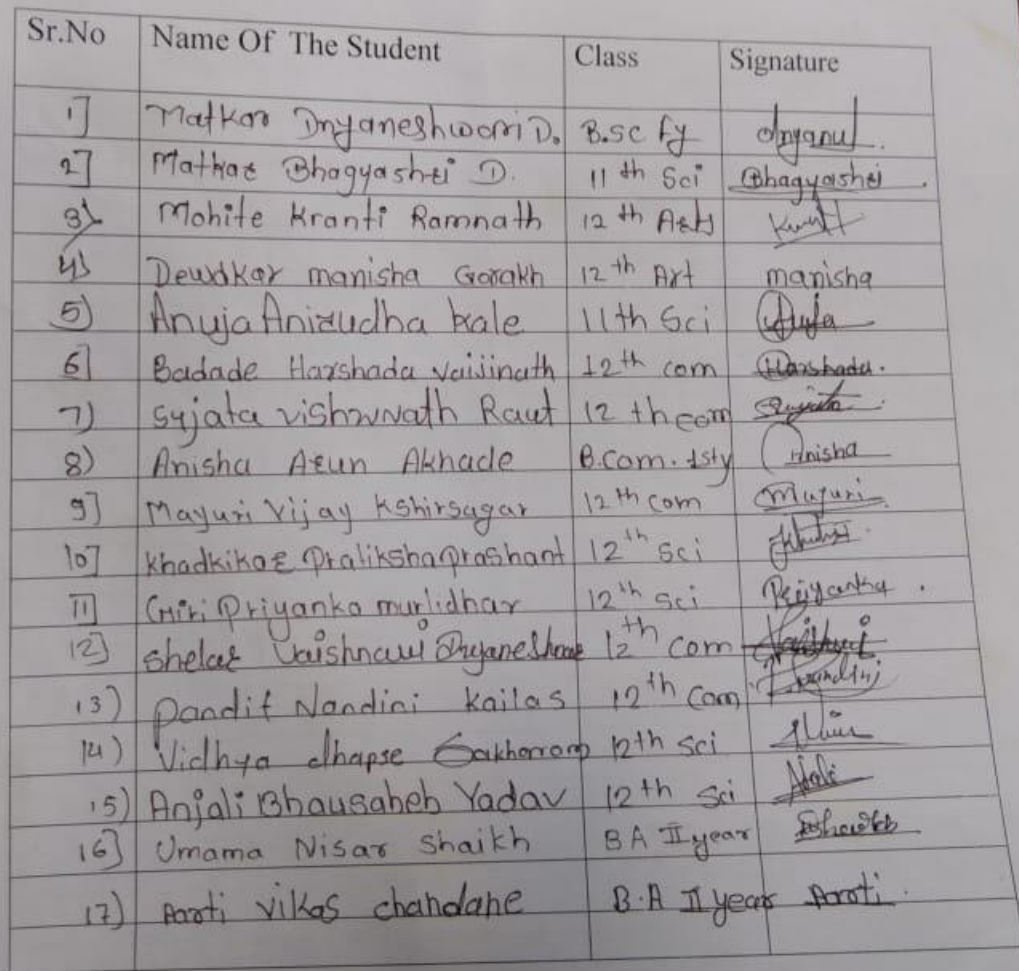 Sr.No Name Of The Student Class Signature
1] Matkar Dnyaneshwari D. B.sc fy
2] Matkar Bhagyashri D. 11 th Sci Bhagyashri
3) Mohite Kranti Ramnath 12 th Arts
4) Dewdkar manisha Gorakh 12 th Art manisha
5) Anuja Anirudha kale 11th Sci Anuja
6] Badade Harshada vaijinath 12th com Harshada.
7) Sujata vishwnath Raut 12 th com Sujata
8) Anisha Arun Akhade B.Com. 1sty Anisha
9] Mayuri Vijay Kshirsagar 12th com Mayuri
10] khadkikar Pratiksha prashant 12th Sci
11] Giri Priyanka murlidhar 12th sci Priyanka.
12] Shelar Vaishnavi Dnyaneshwar 12th com Vaishnavi
13) Pandit Nandini Kailas 12th Com Nandini
14) Vidhya dhapse Sakharam 12th sci
15) Anjali Bhausaheb Yadav 12th Sci
16] Umama Nisar Shaikh BA II year
17) Aarti vikas chandane B.A II year Aarti.